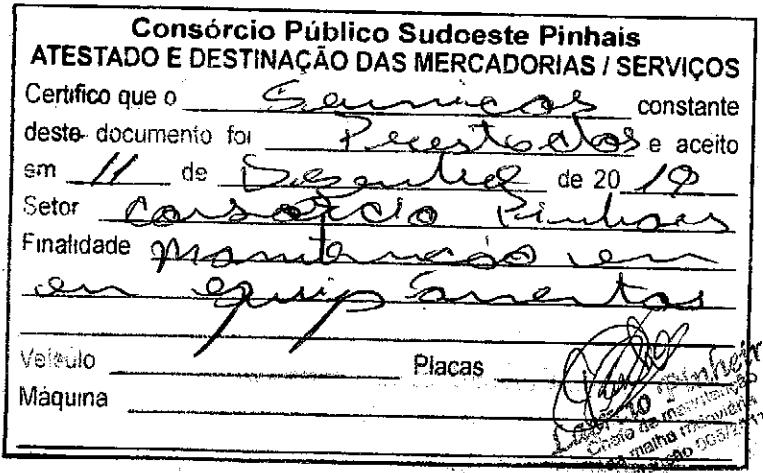 Consórcio Público Sudoeste Pinhais
ATESTADO E DESTINAÇÃO DAS MERCADORIAS / SERVIÇOS
Certifico que o Serviços constante
deste documento foi Prestados e aceito
em 11 de Dezembro de 20 19
Setor Consórcio Pinhais
Finalidade Manutenção em
em equipamentos
Veículo Placas
Máquina
Pinheiro
Chefe de manutenção
da malha rodoviária